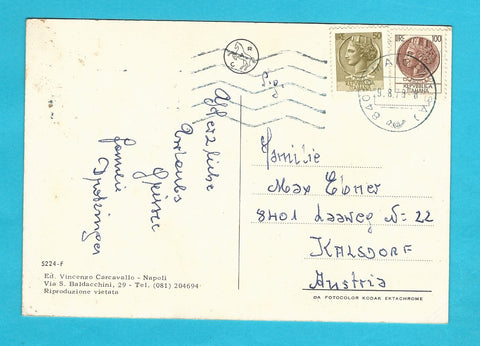 LIRE 50
LIRE 100
REPVBBLICA
ITALIANA
9.8.7
Herzliche
Urlaubs
Grüsse
Familie
Familie
Max Ebner
8401 Laaweg N= 22
KALSDORF
Austria
5224-F
Ed. Vincenzo Carcavallo - Napoli
Via S. Baldacchini, 29 - Tel. (081) 204694
Riproduzione vietata
DA FOTOCOLOR KODAK EKTACHROME